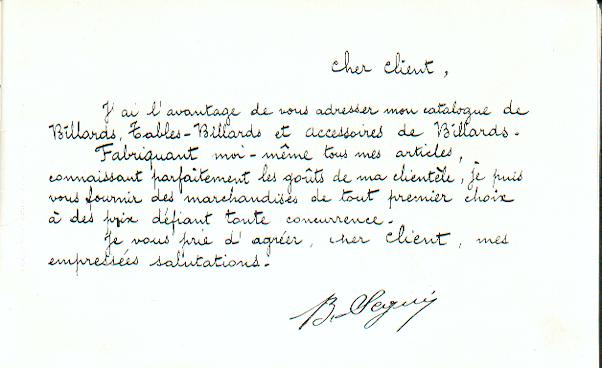 Cher Client,
J'ai l'avantage de vous adresser mon catalogue de
Billards, Tables-Billards et accessoires de Billards.
Fabriquant moi-même tous mes articles,
connaissant parfaitement les goûts de ma clientèle, je puis
vous fournir des marchandises de tout premier choix
à des prix défiant toute concurrence.
Je vous prie d'agréer, cher Client, mes
empressées salutations.
B. Seguin